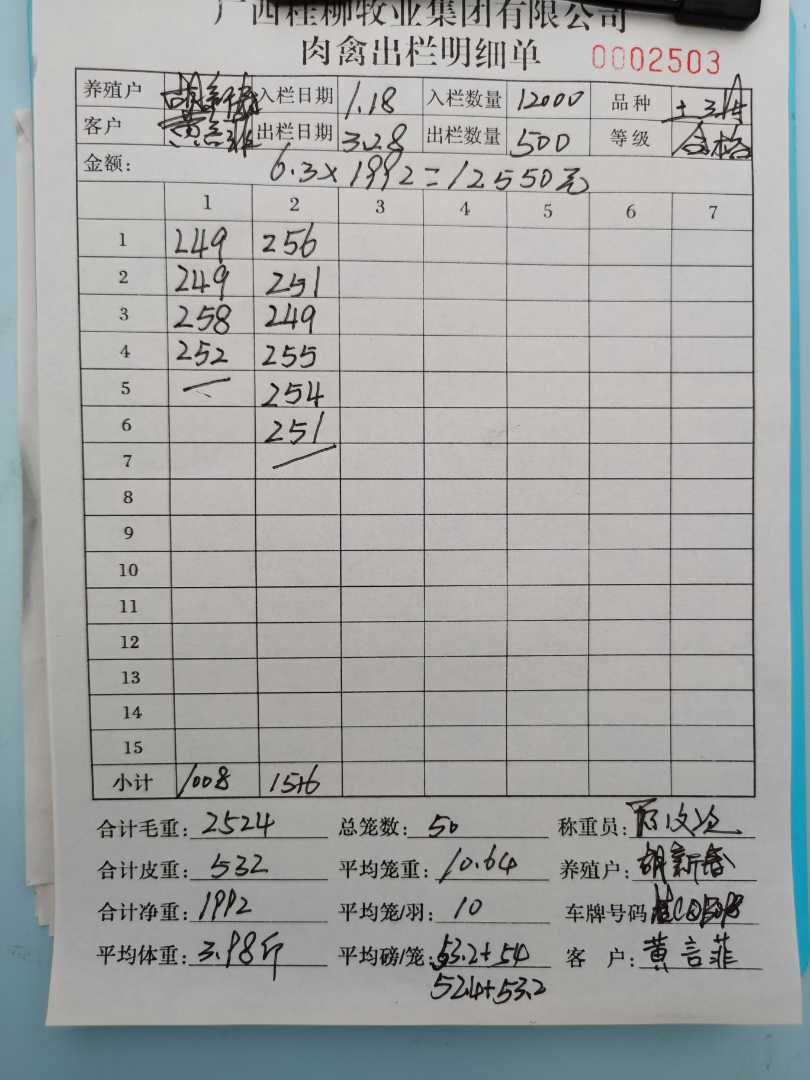 广西桂柳牧业集团有限公司
肉禽出栏明细单 0002503
养殖户 胡新春 入栏日期 1.18 入栏数量 12000 品种 土
客户 黄言菲 出栏日期 3.28 出栏数量 500 等级 合格
金额: 6.3×1992=12550元
1 2 3 4 5 6 7
1 249 256
2 249 251
3 258 249
4 252 255
5 254
6 251
7
8
9
10
11
12
13
14
15
小计 1008 1516
合计毛重: 2524 总笼数: 50 称重员:
合计皮重: 532 平均笼重: 10.64 养殖户: 胡新春
合计净重: 1992 平均笼/羽: 10 车牌号码
平均体重: 3.98斤 平均磅/笼: 53.2+54 客 户: 黄言菲
52.4+53.2